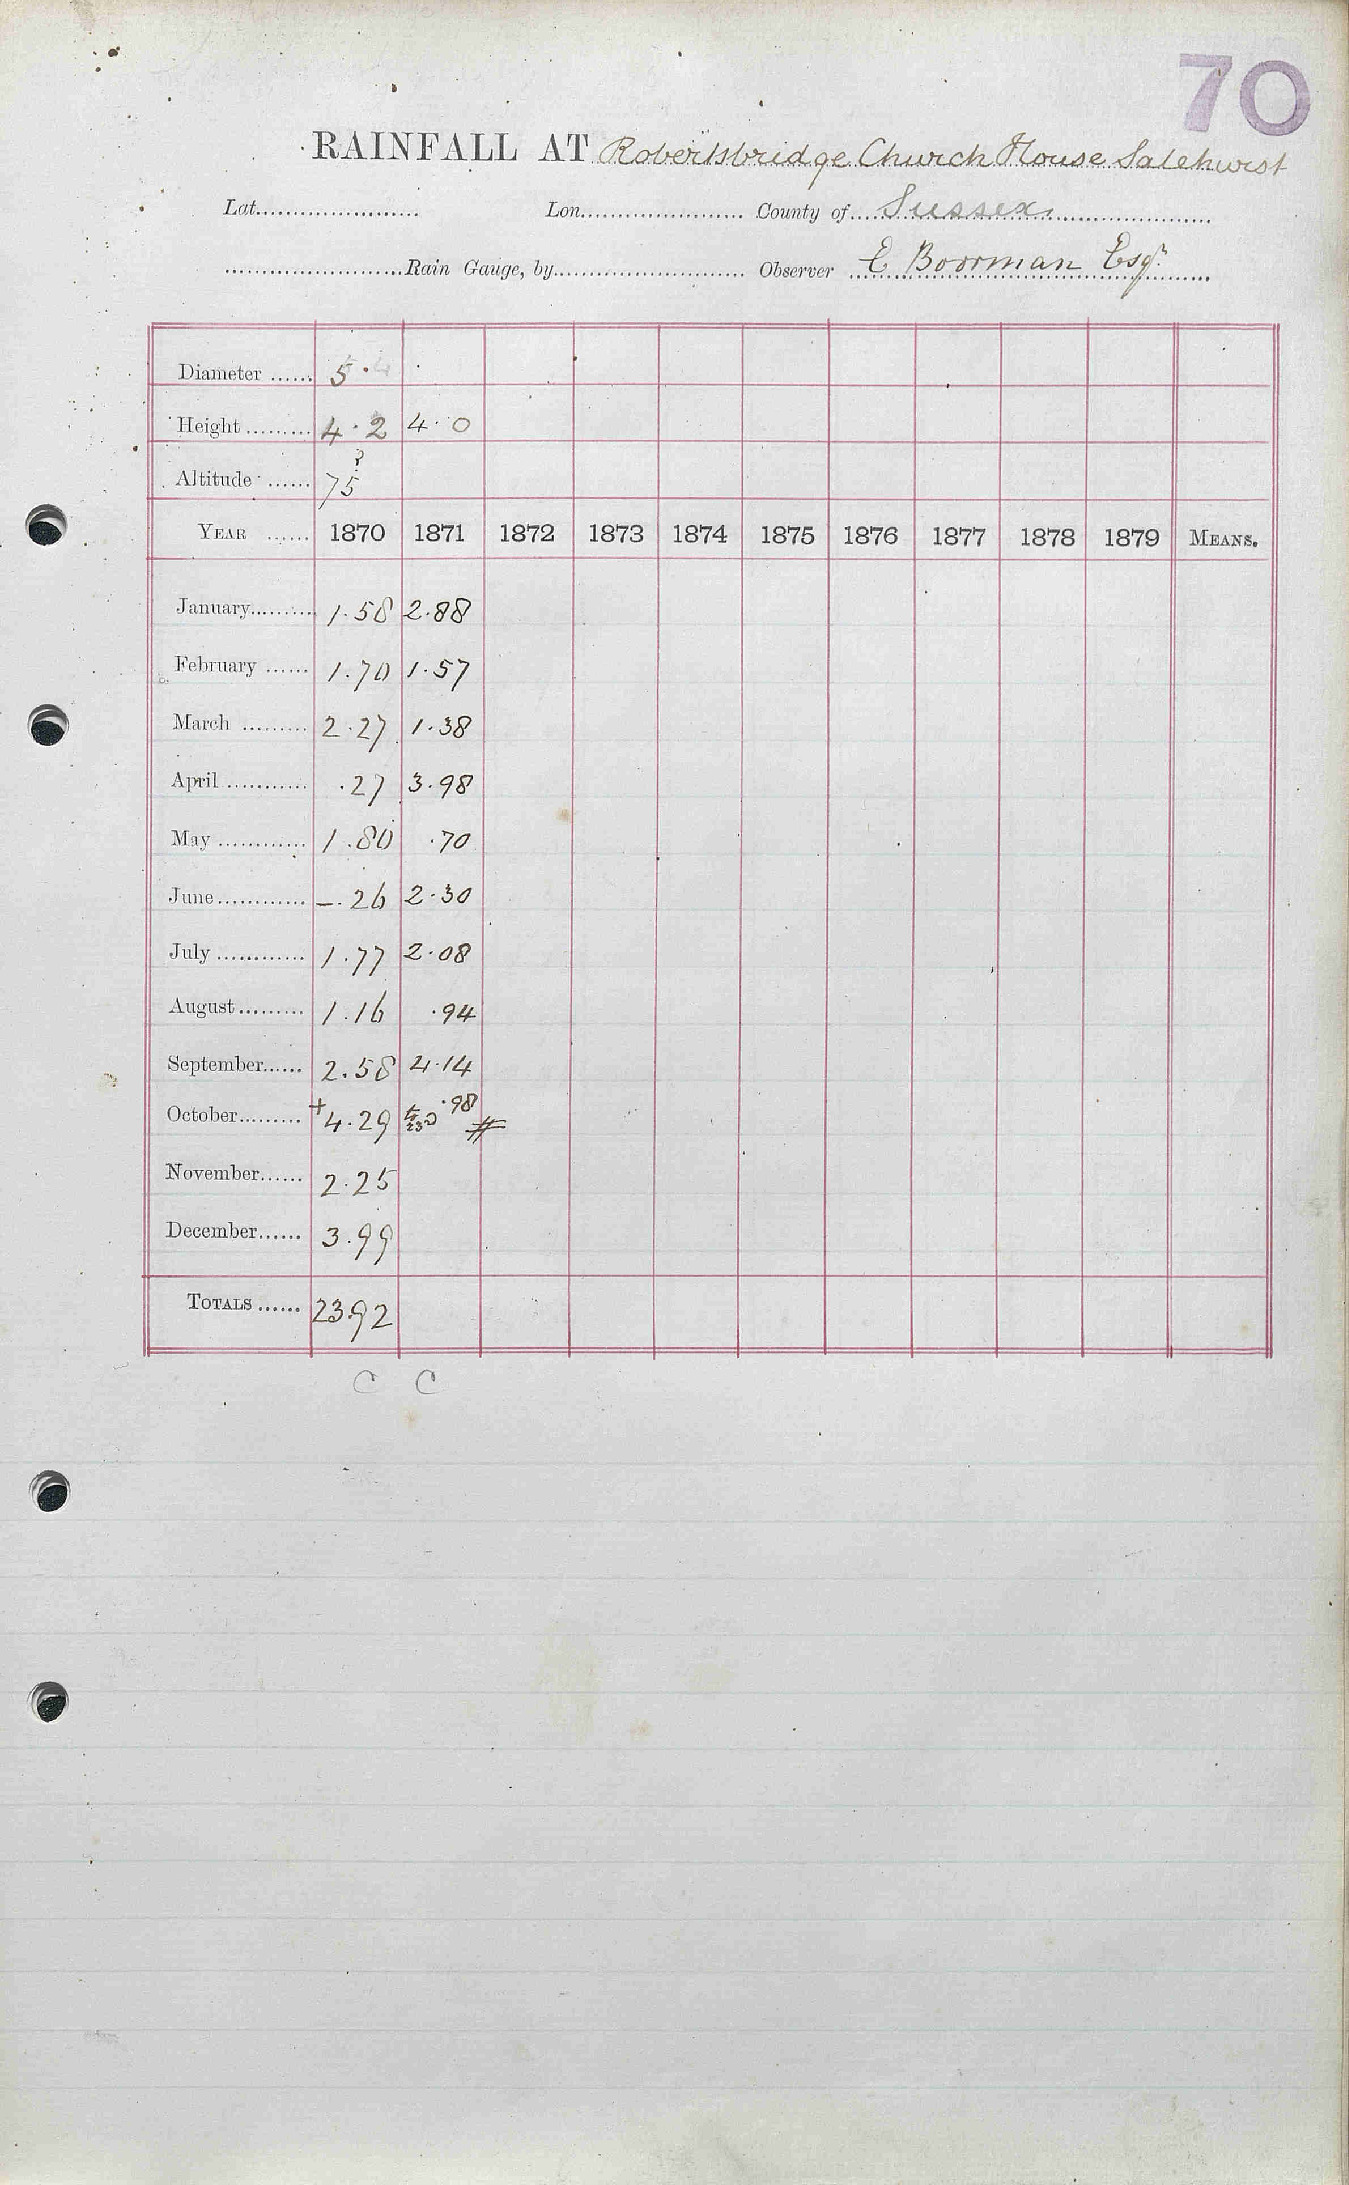 70
RAINFALL AT Robertsbridge Church House Salehurst
Lat...................... Lon...................... County of.... Sussex ......................
........................Rain Gauge, by.......................... Observer E Boorman Esqr
Diameter ...... 5.
Height ......... 4.2 4.0
Altitude ...... 75 ?
YEAR ...... 1870 1871 1872 1873 1874 1875 1876 1877 1878 1879 MEANS.
January.......... 1.58 2.88
February ...... 1.70 1.57
March ......... 2.27 1.38
April ............ .27 3.98
May ............ 1.80 .70
June............ —.26 2.30
July ............ 1.77 2.08
August......... 1.16 .94
September...... 2.58 4.14
October......... +4.29 .98 #
November...... 2.25
December...... 3.99
TOTALS ...... 23.92
C C